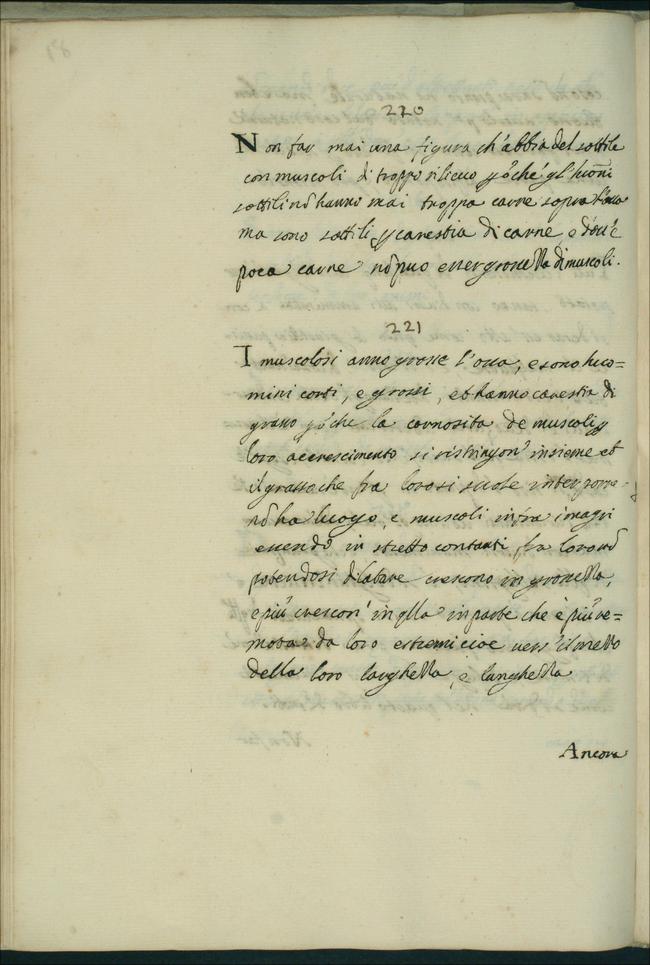 220
Non far mai una figura ch'abbia del sottile
con muscoli di troppo rilieuo p̃ò che gl'huom̃i
sottili nõ hanno mai troppa carne sopra l'ossa
ma sono sottili p carestia di carne e dou'è
poca carne nõ puo esser grossezza di muscoli.
221
I muscolosi anno grosse l'ossa, e sono huo=
mini corti, e grossi, et hanno carestia di
grasso p̃ò che la carnosita de muscoli p
loro accrescimento si ristringon' insieme et
il grasso che fra loro si suole interporre
nõ ha luogo, e muscoli infra i magri
essendo in stretto contanti, fra loro nõ
potendosi dilatare crescono in grossezza,
e più crescon' in qlla in parte che è più re=
mota da loro estremi cioe uers' il mezzo
della loro larghezza, e lunghezza
Ancora